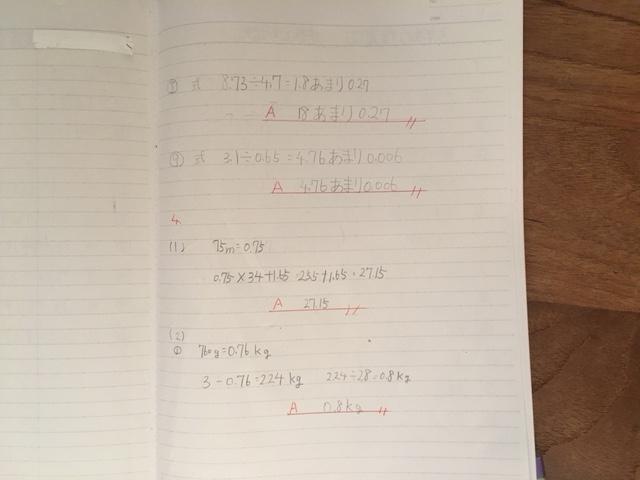 ⑧ 式 8.73÷4.7=1.8あまり0.27
A 18あまり0.27
⑨ 式 3.1÷0.65=4.76あまり0.006
A 4.76あまり0.006
4.
(1) 75m=0.75
0.75×34+1.65=25.5+1.65=27.15
A 27.15
(2)
① 760g=0.76kg
3-0.76=2.24kg 2.24÷2.8=0.8kg
A 0.8kg